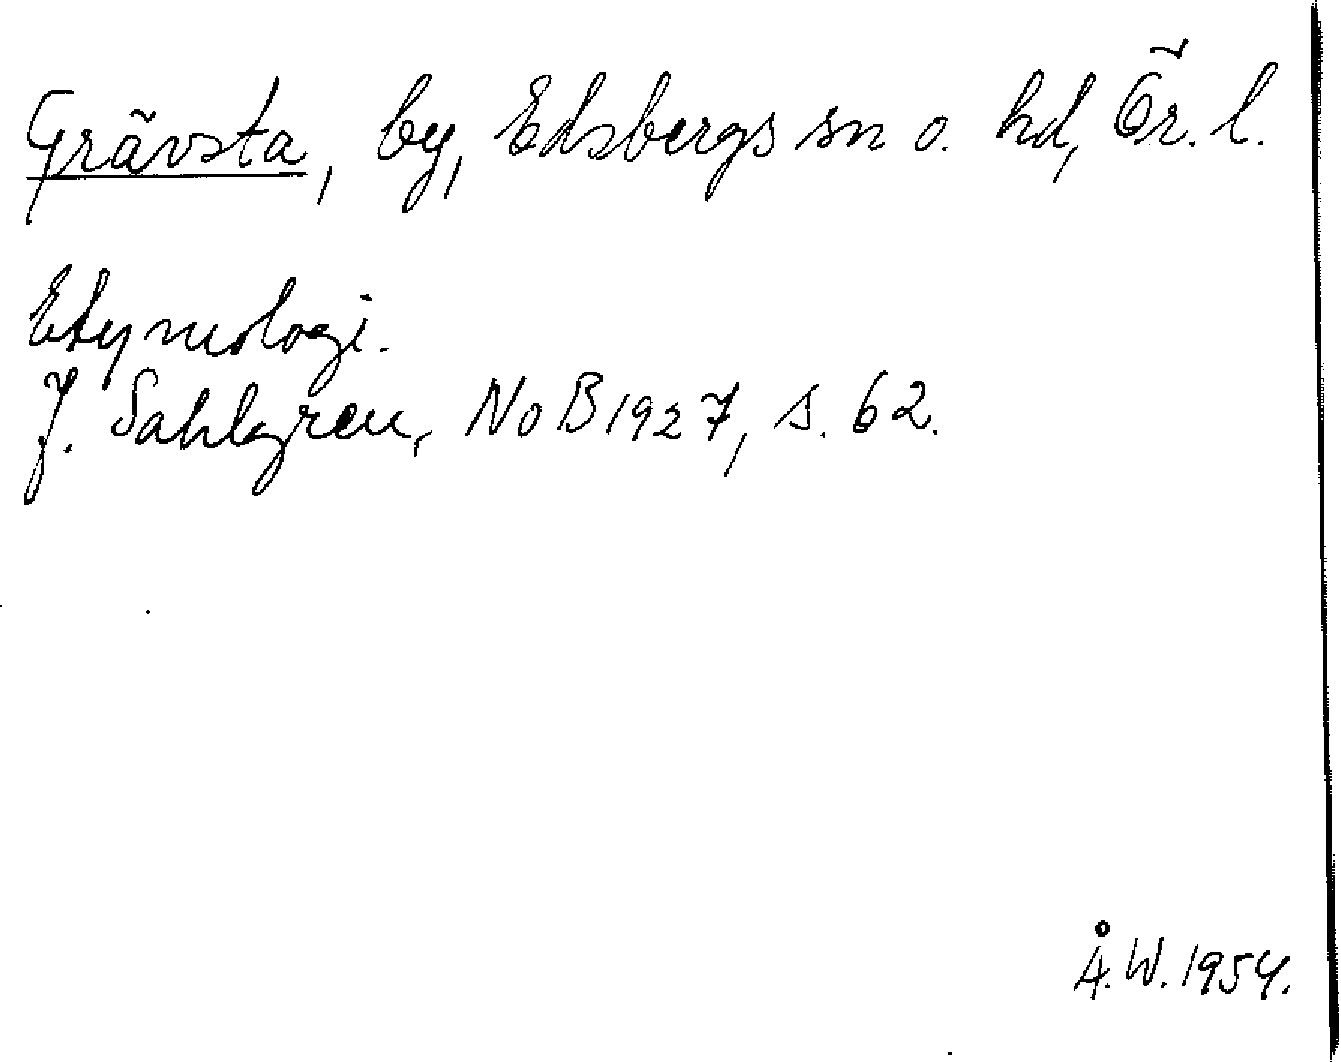 Grävsta, by, Edsbergs sn o. hd, Ör. l.
Etymologi.
J. Sahlgren, NoB 1927, s. 62.
Å. W. 1954.